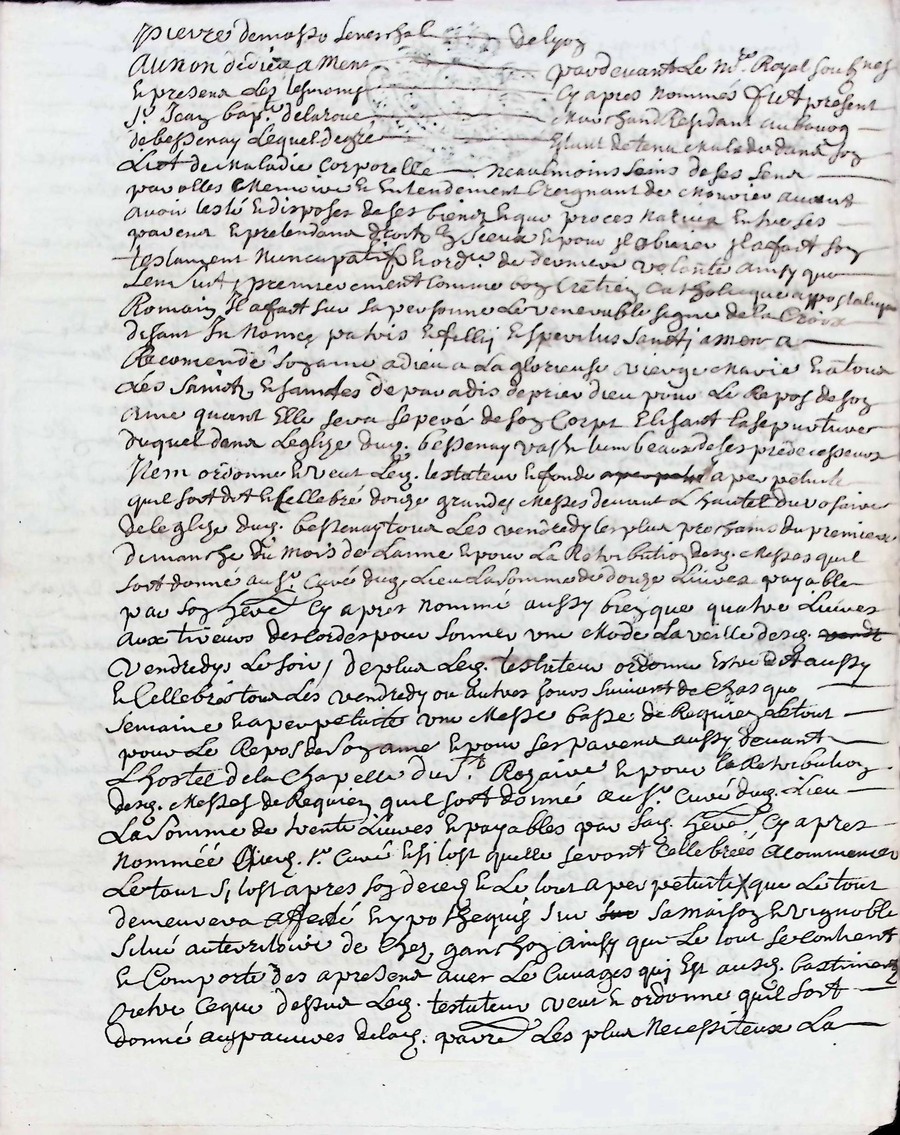 pierre demasso seneschal de lyon
Au non de dieu amen pardevant le nre Royal soubsigné
Et present les tesmoins cy apres nommés fut present
Sr Jean bapte delaroue marchand Residant au bourg
de bessenay lequel degré Estant detenu malade dans son
Lict de maladie Corporelle neaulmoins sains de ses sens
parolles memoire Et Entendement Creignant de mourir avant
avoir testé Et disposés de ses biens Et que proces narriva Entre ses
parens Et pretendans droits En Iceux Et pour Il obvier Il a fait son
testament Nuncupatif Et ordre de derniere volonté ainsy que
sensuit, premierement Comme bon Cretien Catholique appostolique
Romain Il a fait sur sa personne le venerable signe de la Croix
disant In Nomine patris Et fillij Et spiritus Sancti amen a
Recomendé son ame a dieu a La glorieuse vierge marie Et a tous
Les Saints Et saintes de paradis de prier dieu pour Le Repos de son
ame quant Elle sera separé de son Corps Elisant la sepurture
duquel dans Leglize dud. bessenay tumbeaux de ses predecesseurs
Item ordonne Et veut Led. testateur Et fonde a perpetuité
quil soit dit Et Cellebré douze grandes Messes devant Lhautel du rosaire
de leglize dud. bessenay tous Les vendredy les plus prochains du premier
dimanche du mois de Lanné Et pour La Retribution desd. Messes quil
soit donné au sr. Curé dud. Lieu La somme de douze Livres payable
par son here. Cy apres nommé aussy bien que quatre Livres
aux tireurs des Cordes pour sonner une mode La veille desd. vendr
vendredys Le soir, de plus Led. testateur ordonne Estre dit aussy
Et Cellebrés tous Les vendredy ou autres jours suivant de Chasque
semaine Et a perpetuité une Messe basse de Requiem Le tout
pour Le Repos de son ame Et pour ses parens aussy devant
Lhostel de la Chapelle du St. Rozaire Et pour la Retribution
desd. Messes de Requiem quil soit donné au sr. Curé dud. Lieu
La somme de trente Livres Et payables par sad. here. Cy apres
Nommée aud. sr. Curé Et si tost quelle seront Cellebrées a Commencer
Le tout si tost apres son deces Et Le tout a perpetuité que Le tout
demeurera affecté Et ypothequés sur sa maison Et vignoble
situé au terittoire de Chez ganchon ainsy que Le tout se Contient
Et Comporte des a present avec Le Cuvages qui Est ausd. bastiments
outre Ce que dessus Led. testateur veut Et ordonne quil soit
donné aux pauvres de lad. parre. Les plus Necessiteux La